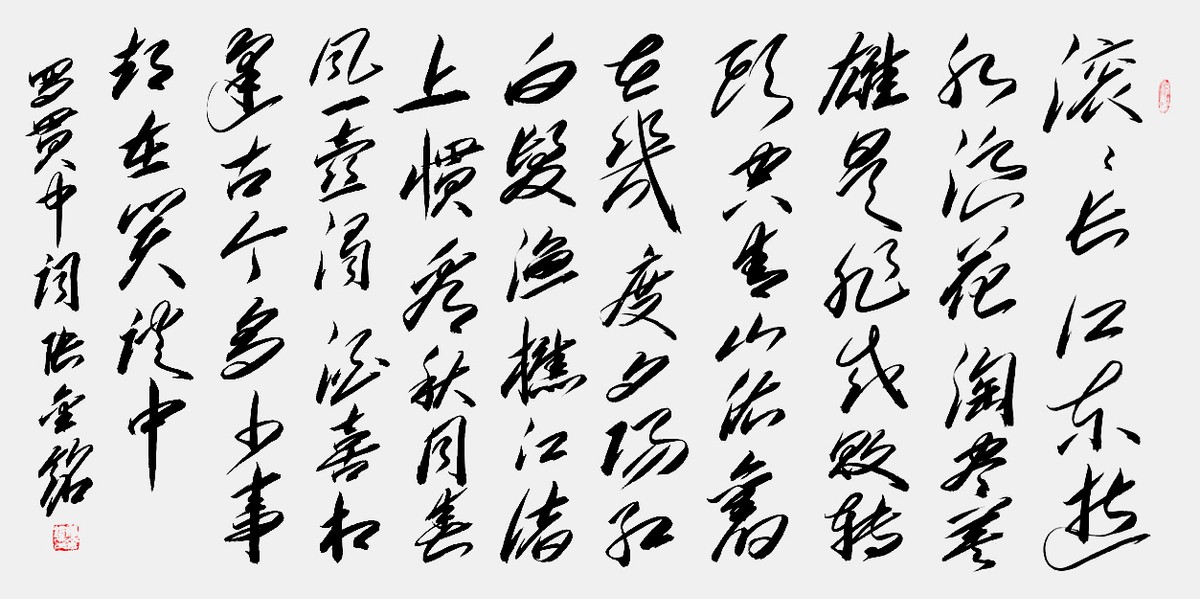 滚〻长江东逝
水浪花淘尽英
雄是非成败转
头空青山依舊
在幾度夕阳红
白髮渔樵江渚
上惯看秋月春
风一壶浊酒喜相
逢古今多少事
却在笑谈中
罗贯中词张金铭